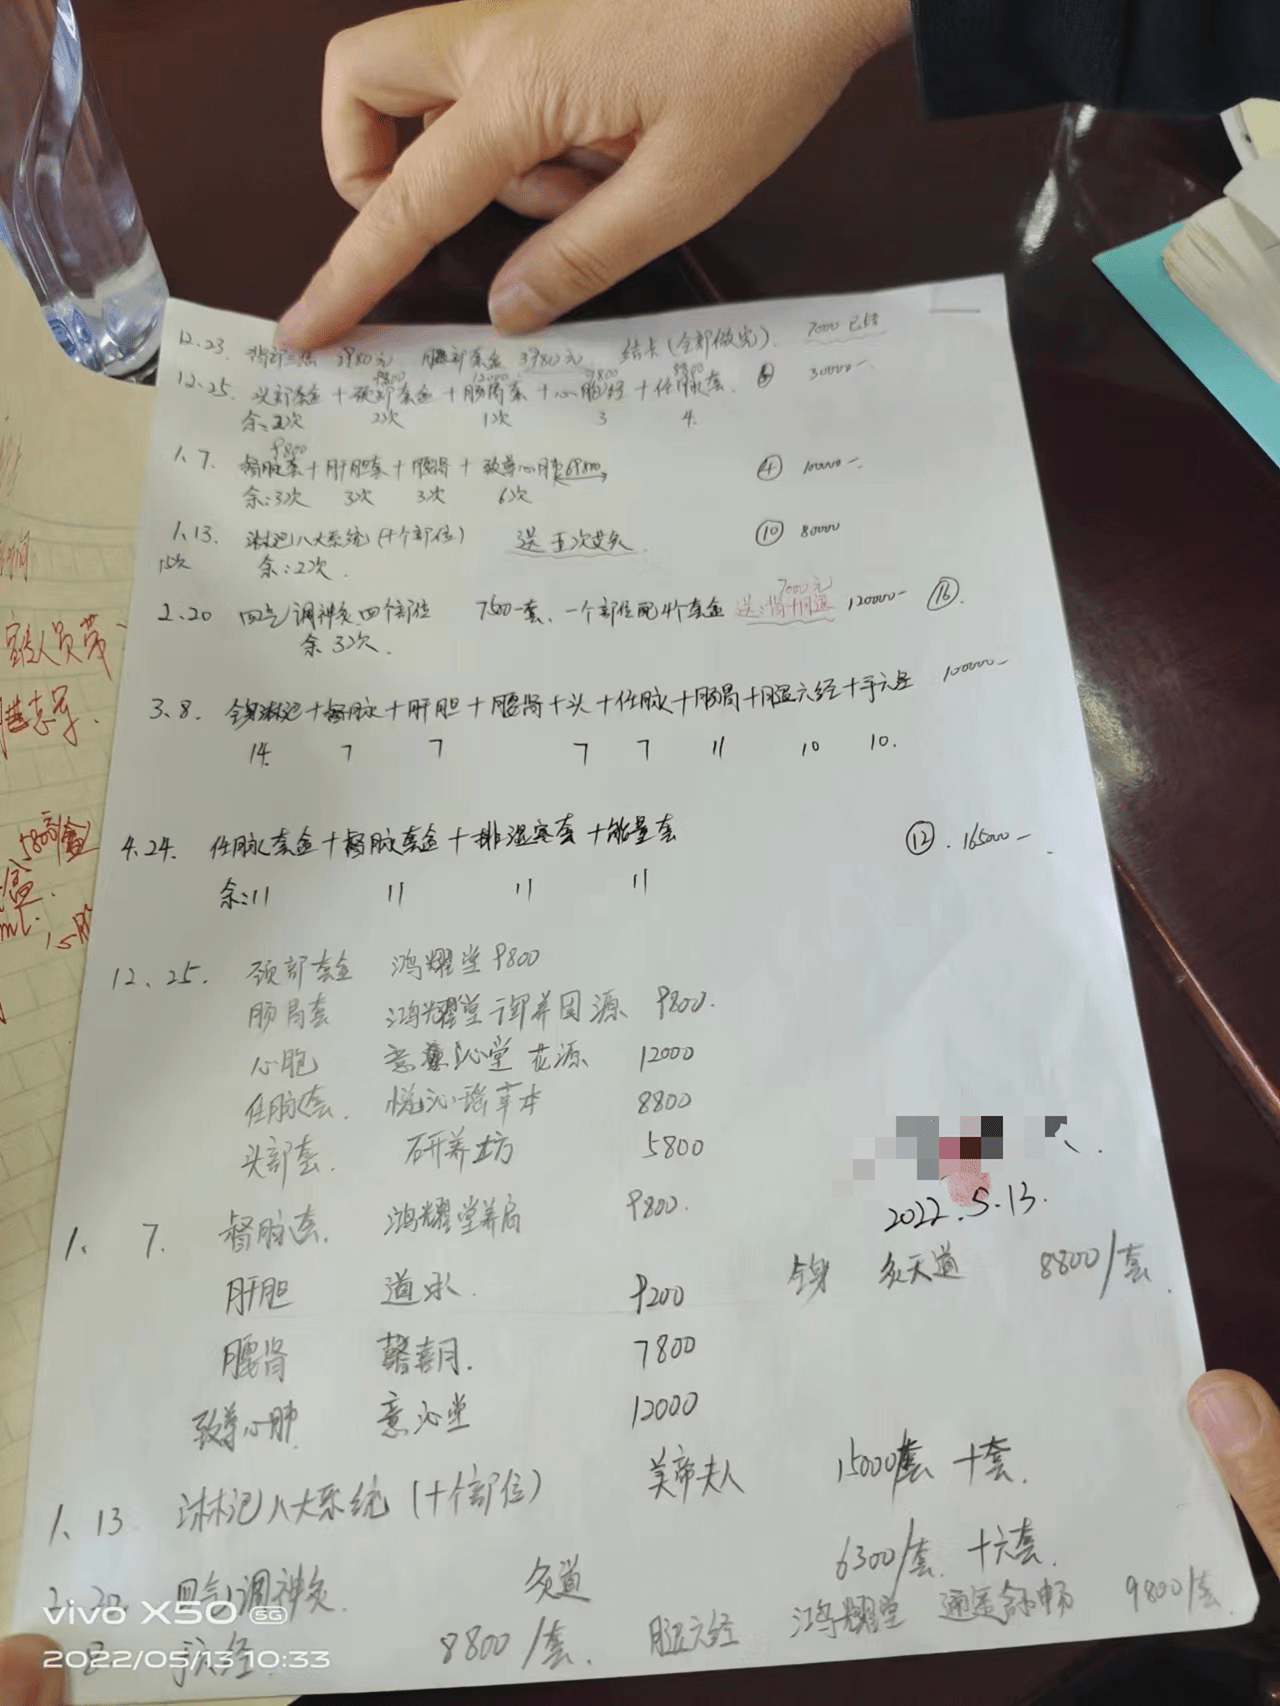 12.23. 背部三伏 3980元 腰部套盒 3980元 结卡(全部做完). 7000 已结
9800 12000 9800 8800
12.25. 头部套盒+颈部套盒+肠胃套+心胞经+任脉套. 30000-
余:2次 2次 1次 3 4.
9800
1.7. 督脉套+肝胆套+腰肾+致尊心肺 ④ 10000-
余:3次 3次 3次 6次
1.13. 淋巴八大系统(十个部位) 送五次艾灸 ⑩ 80000
15次 余:2次.
7000元
2.20 四气调神灸.四个部位 7500一套、一个部位配4个套盒 送: 120000- ⑯.
余3次.
3.8. 全身淋巴+督脉+肝胆+腰肾+头+任脉+肠胃+腿六经+手六经 100000-
14 7 7 7 7 11 10 10.
4.24. 任脉套盒+督脉套盒+排湿寒套+能量套 ⑫.165000-
余:11 11 11 11
12.25. 颈部套盒 鸿耀堂 9800
肠胃套 鸿耀堂 御养固源 9800.
心胞 意沁堂 花源 12000
任脉套. 悦沁瑶草本 8800
头部套. 研养坊 5800
1. 7. 督脉套. 鸿耀堂养局 9800.
2022.5.13.
肝胆 道水. 9200 全身 灸天道 8800/套.
腰肾 馨喜月. 7800
致尊心肺. 意沁堂 12000
1.13 淋巴八大系统(十个部位) 美帝夫人 15000/套 十套.
2.20. 四气调神灸. 灸道 6300/套 十六套.
手六经. 8800/套. 腿六经 鸿耀堂 通运舒畅 9800/套.
宣传人员带
5800/盒
盒.
ml.
vivo X50 5G
2022/05/13 10:33